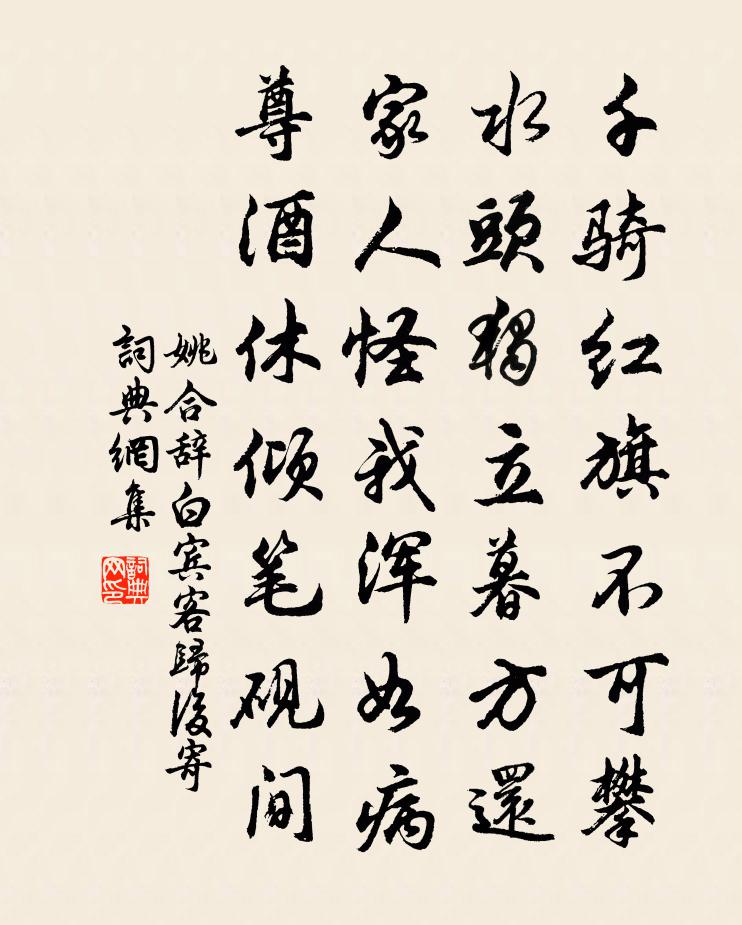 千骑红旗不可攀
水頭獨立暮方還
家人怪我浑如病
尊酒休倾笔砚间
姚合辞白宾客歸後寄
詞典網集
詞典网印